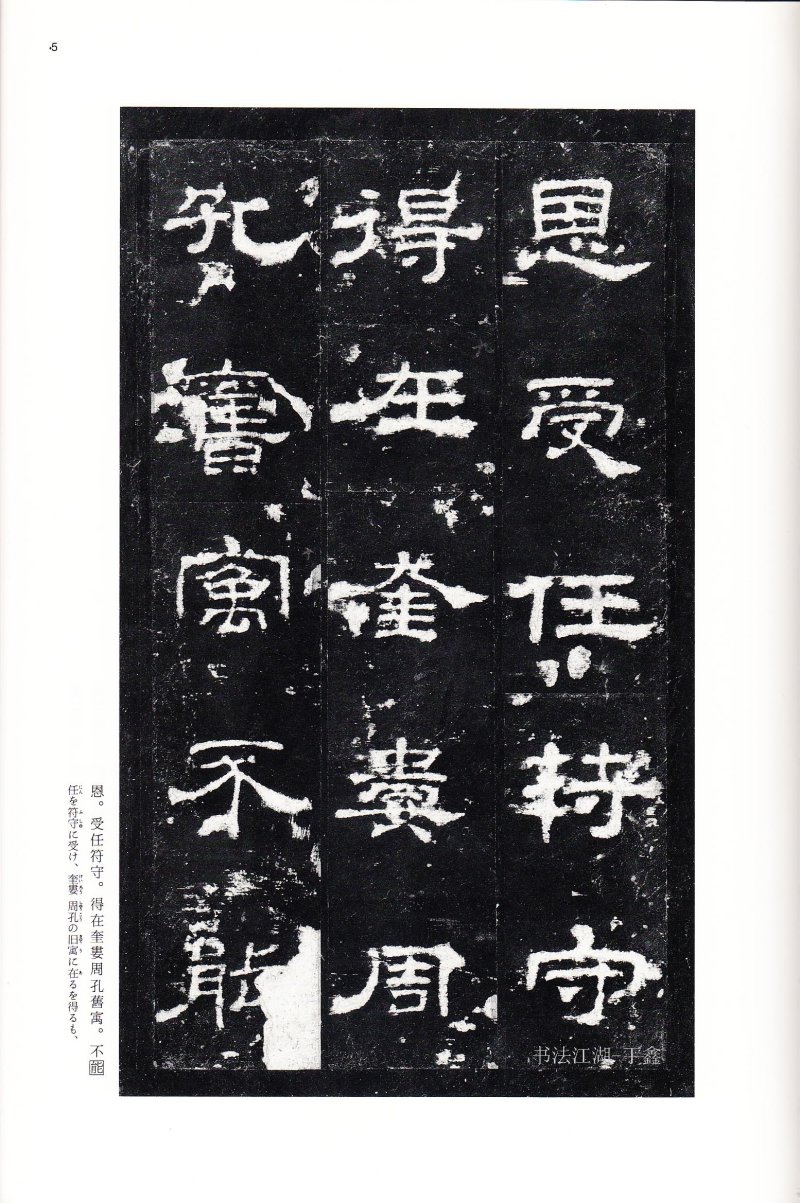 5
恩受任符守
得在奎婁周
孔舊寓不能
恩。受任符守。得在奎婁周孔舊寓。不能
任を符守に受け、奎婁周孔の旧寓に在るを得るも、
书法江湖-于鑫